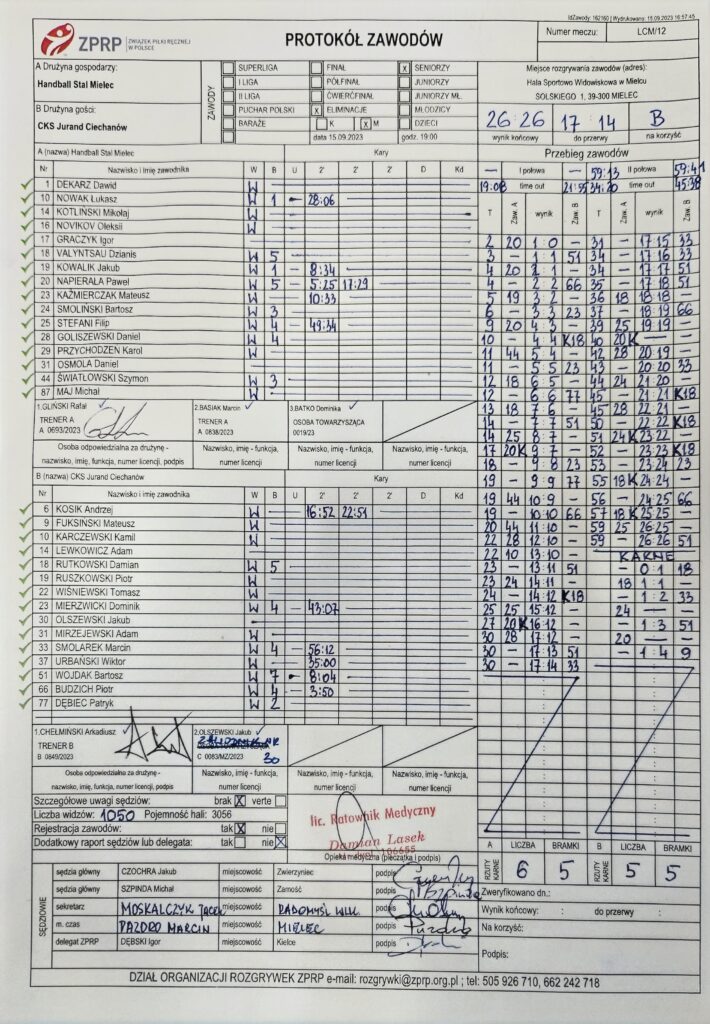 IdZawody: 162160 | Wydrukowano: 15.09.2023 16:57:45
ZPRP ZWIĄZEK PIŁKI RĘCZNEJ W POLSCE
PROTOKÓŁ ZAWODÓW
Numer meczu: LCM/12
A Drużyna gospodarzy:
Handball Stal Mielec
B Drużyna gości:
CKS Jurand Ciechanów
ZAWODY
SUPERLIGA FINAŁ X SENIORZY
I LIGA PÓŁFINAŁ JUNIORZY
II LIGA ĆWIERĆFINAŁ JUNIORZY MŁ.
PUCHAR POLSKI X ELIMINACJE MŁODZICY
BARAŻE K X M DZIECI
data 15.09.2023 godz. 19:00
Miejsce rozgrywania zawodów (adres):
Hala Sportowo Widowiskowa w Mielcu
SOLSKIEGO 1, 39-300 MIELEC
26:26 17:14 B
wynik końcowy do przerwy na korzyść
A (nazwa) Handball Stal Mielec Kary
Nr Nazwisko i imię zawodnika W B U 2' 2' 2' D Kd
1 DEKARZ Dawid W
10 NOWAK Łukasz W 1 - 28:06
14 KOTLIŃSKI Mikołaj W
16 NOVIKOV Oleksii W
17 GRACZYK Igor
18 VALYNTSAU Dzianis W 5
19 KOWALIK Jakub W 1 - 8:34
20 NAPIERAŁA Paweł W 5 - 5:25 17:29
23 KAŹMIERCZAK Mateusz W 10:33
24 SMOLIŃSKI Bartosz W 3
25 STEFANI Filip W 4 - 49:34
28 GOLISZEWSKI Daniel W 4
29 PRZYCHODZEŃ Karol W
31 OSMOLA Daniel
44 ŚWIATŁOWSKI Szymon W 3
87 MAJ Michał W
1.GLIŃSKI Rafał 2.BASIAK Marcin 3.BATKO Dominika
TRENER A TRENER A OSOBA TOWARZYSZĄCA
A 0693/2023 A 0838/2023 0019/23
Osoba odpowiedzialna za drużynę - Nazwisko, imię - funkcja, Nazwisko, imię - funkcja, Nazwisko, imię - funkcja,
nazwisko, imię, funkcja, numer licencji, podpis numer licencji numer licencji numer licencji
B (nazwa) CKS Jurand Ciechanów Kary
Nr Nazwisko i imię zawodnika W B U 2' 2' 2' D Kd
6 KOSIK Andrzej W 16:52 22:51
9 FUKSIŃSKI Mateusz W
10 KARCZEWSKI Kamil W
14 LEWKOWICZ Adam
18 RUTKOWSKI Damian W 5
19 RUSZKOWSKI Piotr W
22 WIŚNIEWSKI Tomasz W
23 MIERZWICKI Dominik W 4 - 43:07
30 OLSZEWSKI Jakub
31 MIRZEJEWSKI Adam W
33 SMOLAREK Marcin W 4 - 56:12
37 URBAŃSKI Wiktor W 35:00
51 WOJDAK Bartosz W 7 - 8:04
66 BUDZICH Piotr W 4 - 3:50
77 DĘBIEC Patryk W 2
1.CHEŁMIŃSKI Arkadiusz 2.OLSZEWSKI Jakub
TRENER B ZAWODNIK NR 30
B 0849/2023 C 0083/MZ/2023
Osoba odpowiedzialna za drużynę - Nazwisko, imię - funkcja, Nazwisko, imię - funkcja, Nazwisko, imię - funkcja,
nazwisko, imię, funkcja, numer licencji, podpis numer licencji numer licencji numer licencji
Szczegółowe uwagi sędziów: brak X verte
Liczba widzów: 1050 Pojemność hali: 3056
Rejestracja zawodów: tak X nie
Dodatkowy raport sędziów lub delegata: tak nie X
lic. Ratownik Medyczny
Damian Lasek
Opieka medyczna (pieczątka i podpis)
SĘDZIOWIE
sędzia główny CZOCHRA Jakub miejscowość Zwierzyniec podpis
sędzia główny SZPINDA Michał miejscowość Zamość podpis
sekretarz MOSKALCZYK JACEK miejscowość RADOMYŚL WLK. podpis
m. czas PAZDRO MARCIN miejscowość MIELEC podpis
delegat ZPRP DĘBSKI Igor miejscowość Kielce podpis
Przebieg zawodów
— I połowa — 59:13 II połowa 59:41
19:08 time out 21:55 34:20 time out 45:38
T Zaw. A wynik Zaw. B T Zaw. A wynik Zaw. B
2 20 1:0 — 31 — 17:15 33
3 — 1:1 51 34 — 17:16 33
4 20 2:1 — 34 — 17:17 51
4 — 2:2 66 35 — 17:18 51
5 19 3:2 — 36 18 18:18 —
6 — 3:3 23 37 — 18:19 66
9 20 4:3 — 39 25 19:19 —
10 — 4:4 K18 40 20K —
11 44 5:4 — 42 28 20:19 —
11 — 5:5 23 43 — 20:20 33
12 18 6:5 — 44 24 21:20 —
12 — 6:6 77 45 — 21:21 K18
13 18 7:6 — 45 28 22:21 —
14 — 7:7 51 50 — 22:22 K18
14 25 8:7 — 51 24K 23:22 —
17 20K 9:7 — 52 — 23:23 K18
18 — 9:8 23 53 — 23:24 23
19 — 9:9 77 55 18K 24:24 —
19 44 10:9 — 56 — 24:25 66
19 — 10:10 66 57 18K 25:25 —
20 44 11:10 — 59 25 26:25 —
22 28 12:10 — 59 — 26:26 51
22 10 13:10 — KARNE
23 — 13:11 51 — 0:1 18
23 24 14:11 — 18 1:1 —
24 — 14:12 K18 — 1:2 33
25 25 15:12 — 24 — —
27 20K 16:12 — — 1:3 51
30 28 17:12 — 20 — —
30 — 17:13 51 — 1:4 9
30 — 17:14 33
A LICZBA BRAMKI B LICZBA BRAMKI
RZUTY KARNE 6 5 RZUTY KARNE 5 5
Zweryfikowano dn.:
Wynik końcowy: : do przerwy :
Na korzyść:
Podpis:
DZIAŁ ORGANIZACJI ROZGRYWEK ZPRP e-mail: rozgrywki@zprp.org.pl ; tel: 505 926 710, 662 242 718